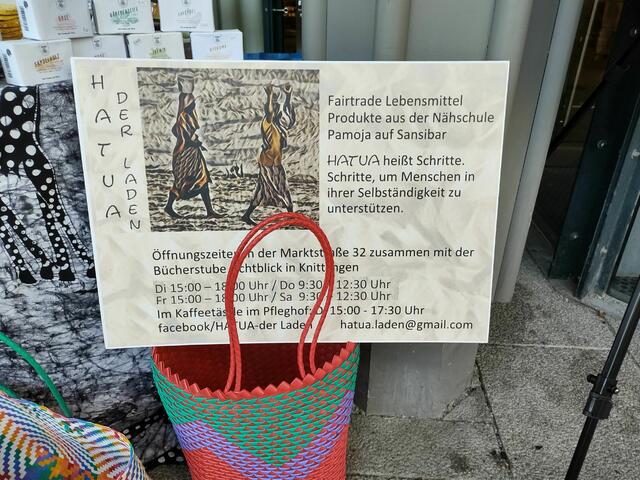 HATUA
DER LADEN
Fairtrade Lebensmittel
Produkte aus der Nähschule
Pamoja auf Sansibar
HATUA heißt Schritte.
Schritte, um Menschen in
ihrer Selbständigkeit zu
unterstützen.
Öffnungszeiten in der Marktstraße 32 zusammen mit der
Bücherstube chtblick in Knittlingen
Di 15:00 – 18:00 Uhr / Do 9:30 12:30 Uhr
Fr 15:00 – 18:00 Uhr / Sa 9:30 12:30 Uhr
Im Kaffeetässle im Pfleghof: 15:00 - 17:30 Uhr
facebook/HATUA-der Laden hatua.laden@gmail.com